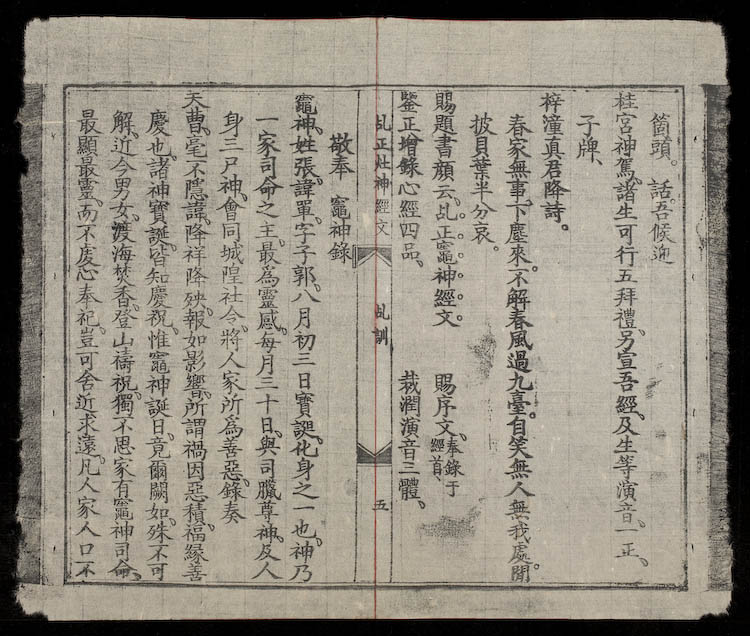 箇頭。 話。吾候迎
桂宮神駕。諸生可行五拜禮。另宣吾經。及生等演音。一正。
子牌。
梓潼真君降詩。
春家無事下塵來。不解春風過九臺。自笑無人無我處。閒
披貝葉半分哀。
賜題書顔云。乩正竈神經文。 賜序文。奉錄于經首。
鑒正增錄心經四品。 裁潤演音三體。
乩正灶神經文 乩訓 五
敬奉 竈神錄
竈神。姓張。諱單。字子郭。八月初三日寶誕。化身之一也。神乃
一家司命之主。最爲靈感。每月三十日。與司臟尊神。及人
身三尸神。會同城隍社令。將人家所爲善惡。錄奏
天曹。毫不隱諱。降祥降殃。報如影響。所謂禍因惡積。福緣善
慶也。諸神寶誕。皆知慶祝。惟竈神誕日。竟爾闕如。殊不可
解。近今男女。渡海焚香。登山禱祝。獨不思家有竈神司命。
最顯最靈。而不虔心奉祀。豈可舍近求遠。凡人家人口不